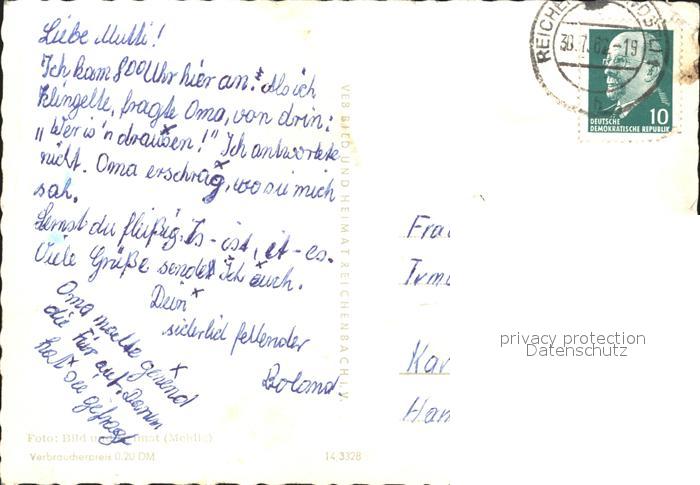 Liebe Mutti!
Ich kam 800 Uhr hier an. Als ich
klingelte, fragte Oma, von drin:
„Wer is'n draußen!" Ich antwortete
nicht. Oma erschrag, wo sie mich
sah.
Lernst du fleißig. Is-ist, it-es.
Viele Grüße sendet Ich euch.
Dein
sicherlich fehlender
Roland
Oma machte gerend
die Tür auf. Darum
hat sie gefragt
Foto: Bild und Heimat (Mehlig)
Verbraucherpreis 0,20 DM
14 3328
VEB BILD UND HEIMAT REICHENBACH I. V.
REICHEN
30.7.62-19
DEUTSCHE
DEMOKRATISCHE REPUBLIK
10
Frau
Kar
privacy protection
Datenschutz